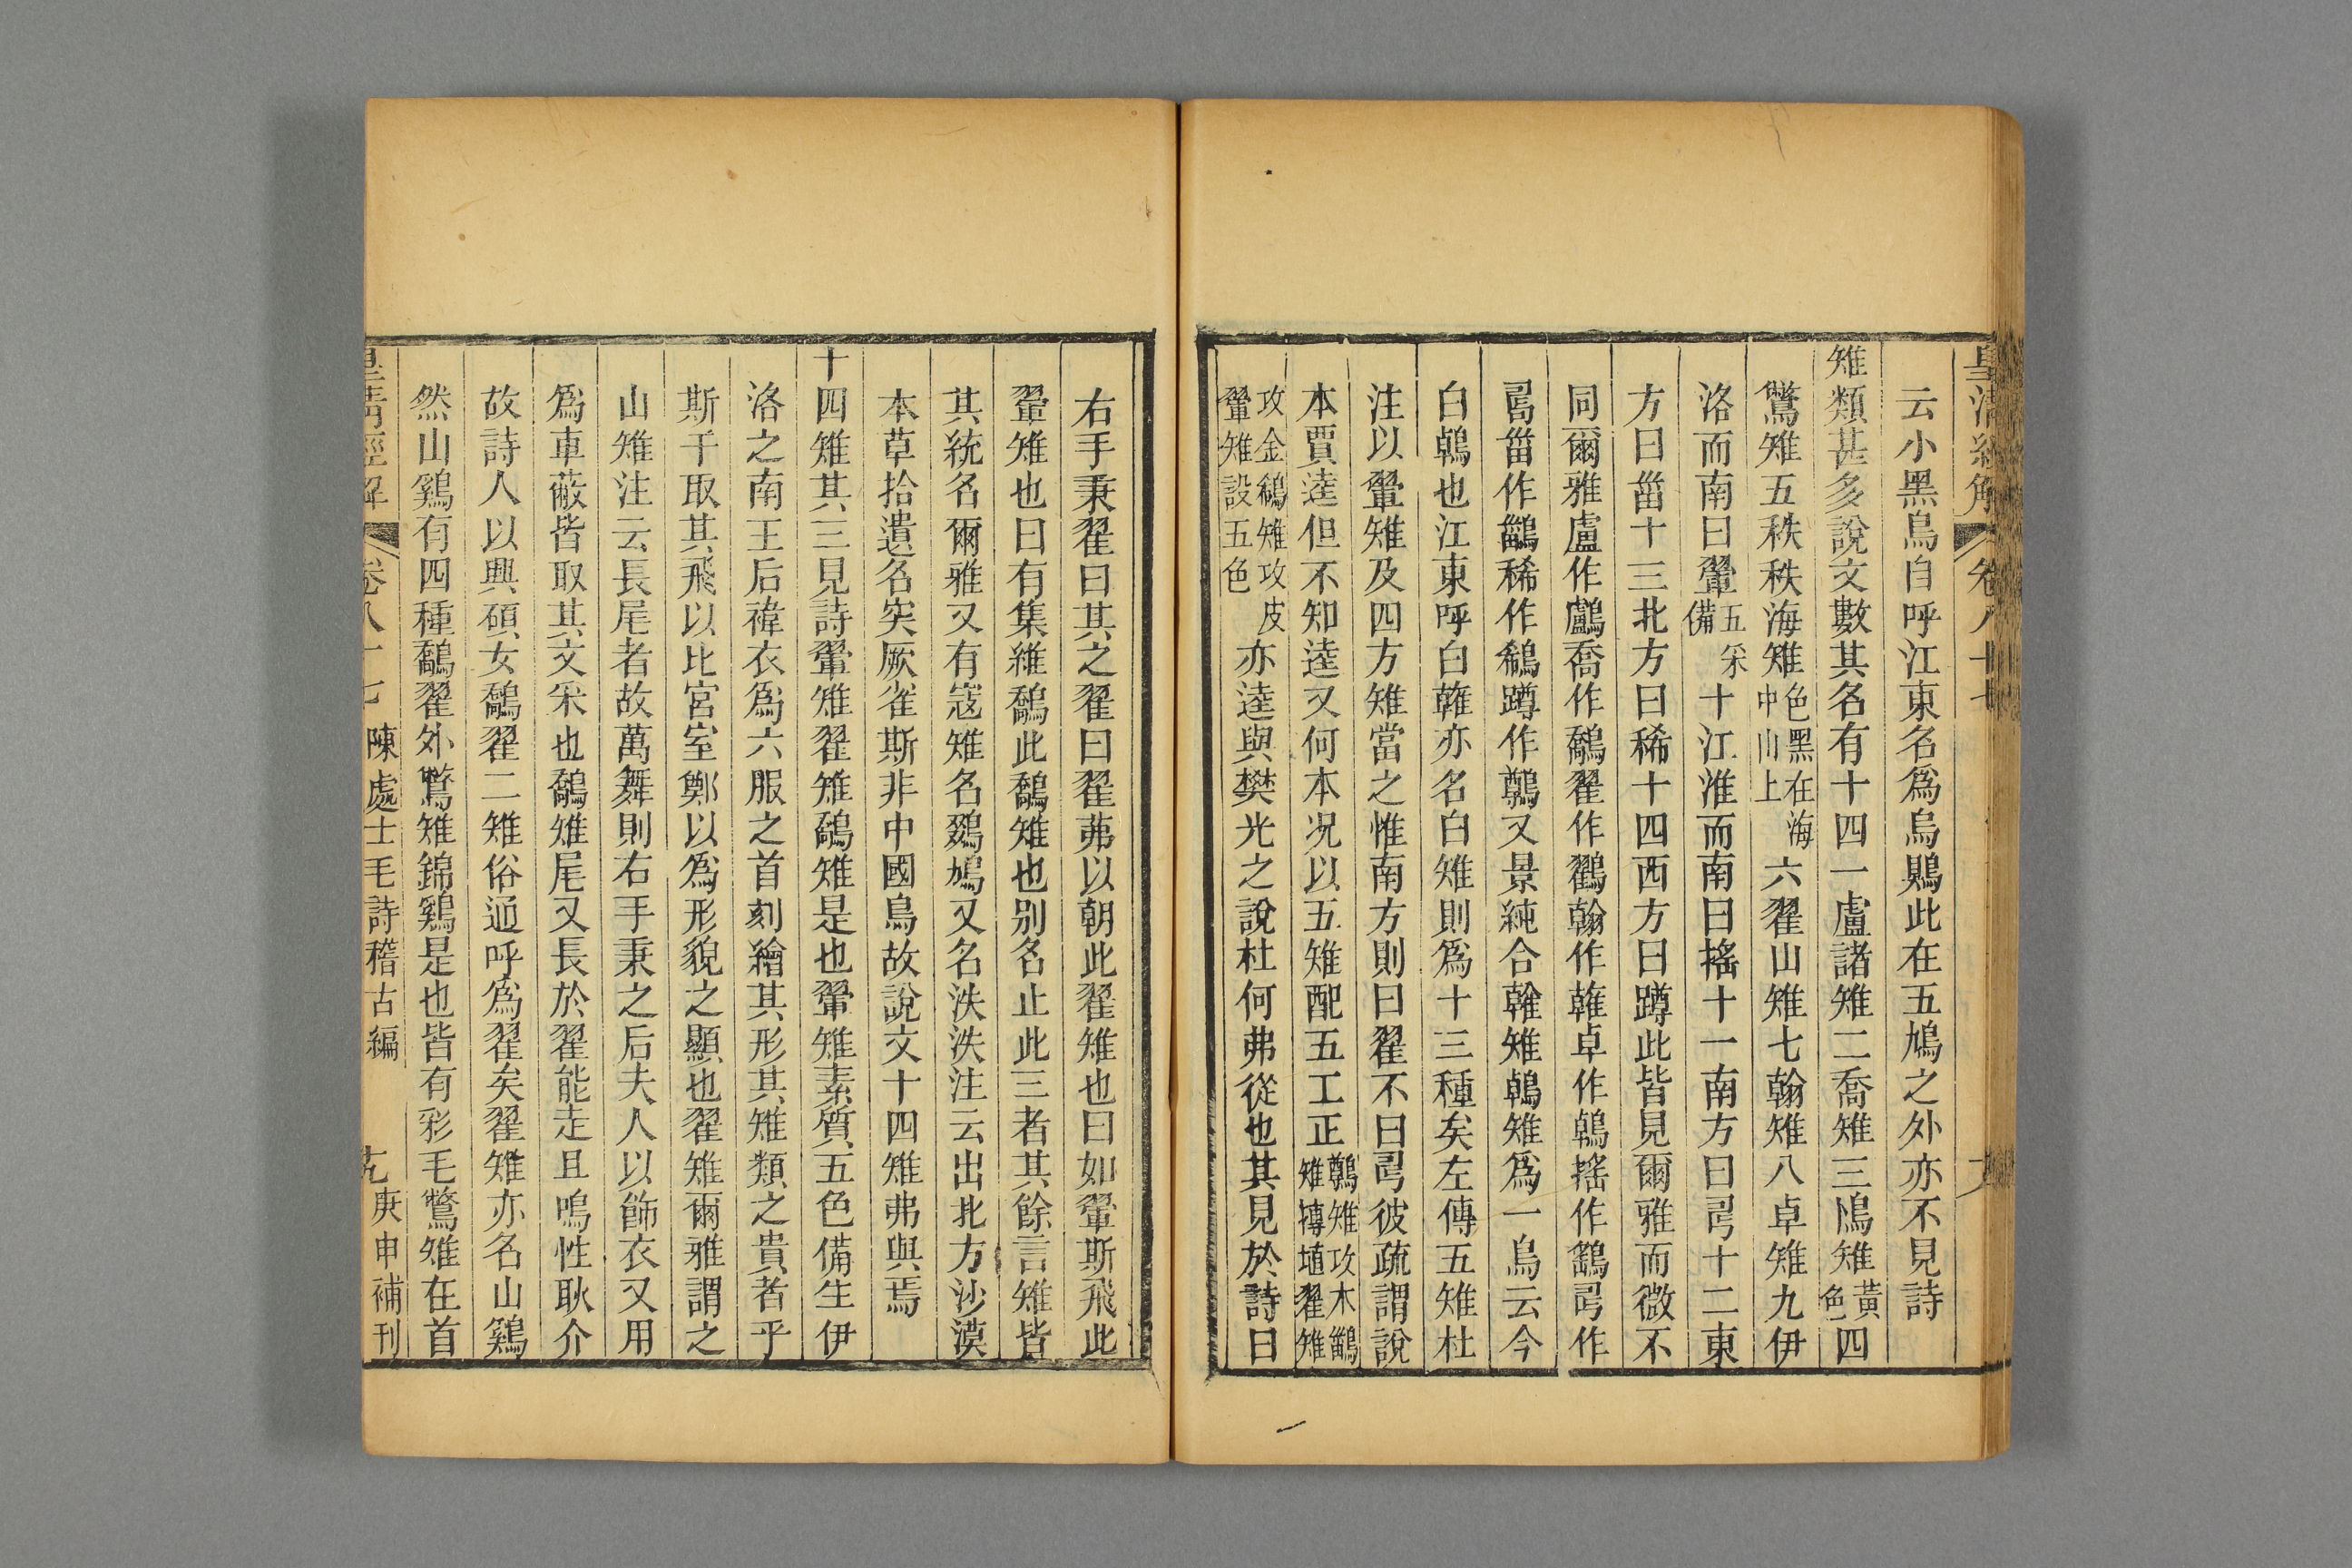 皇清經解 卷八十七
云小黑鳥自呼江東名爲烏鵙此在五鳩之外亦不見詩
雉類甚多說文數其名有十四一盧諸雉二喬雉三鳪雉黃色四
鷩雉五秩秩海雉色黑在海中山上六翟山雉七翰雉八卓雉九伊
洛而南曰翬五采備十江淮而南曰搖十一南方曰𢏚十二東
方曰甾十三北方曰稀十四西方曰蹲此皆見爾雅而微不
同爾雅盧作鸕喬作鷮翟作鸐翰作雗卓作鵫搖作鷂𢏚作
𠷎甾作鶅稀作鵗蹲作鷷又景純合雗雉鵫雉爲一鳥云今
白鵫也江東呼白雗亦名白雉則爲十三種矣左傳五雉杜
注以翬雉及四方雉當之惟南方則曰翟不曰𢏚彼疏謂說
本賈逵但不知逵又何本况以五雉配五工正鷷雉攻木鶅雉摶埴翟雉
攻金鵗雉攻皮翬雉設五色亦逵與樊光之說杜何弗從也其見於詩曰
右手秉翟曰其之翟曰翟茀以朝此翟雉也曰如翬斯飛此
翬雉也曰有集維鷮此鷮雉也別名止此三者其餘言雉皆
其統名爾雅又有寇雉名鵽鳩又名泆泆注云出北方沙漠
本草拾遺名突厥雀斯非中國鳥故說文十四雉弗與焉
十四雉其三見詩翬雉翟雉鷮雉是也翬雉素質五色備生伊
洛之南王后褘衣爲六服之首刻繪其形其雉類之貴者乎
斯干取其飛以比宮室鄭以爲形貌之顯也翟雉爾雅謂之
山雉注云長尾者故萬舞則右手秉之后夫人以飾衣又用
爲車蔽皆取其文采也鷮雉尾又長於翟能走且鳴性耿介
故詩人以興碩女鷮翟二雉俗通呼爲翟矣翟雉亦名山鷄
然山鷄有四種鷮翟外鷩雉錦鷄是也皆有彩毛鷩雉在首
皇清經解 卷八十七 陳處士毛詩稽古編 九 庚申補刊